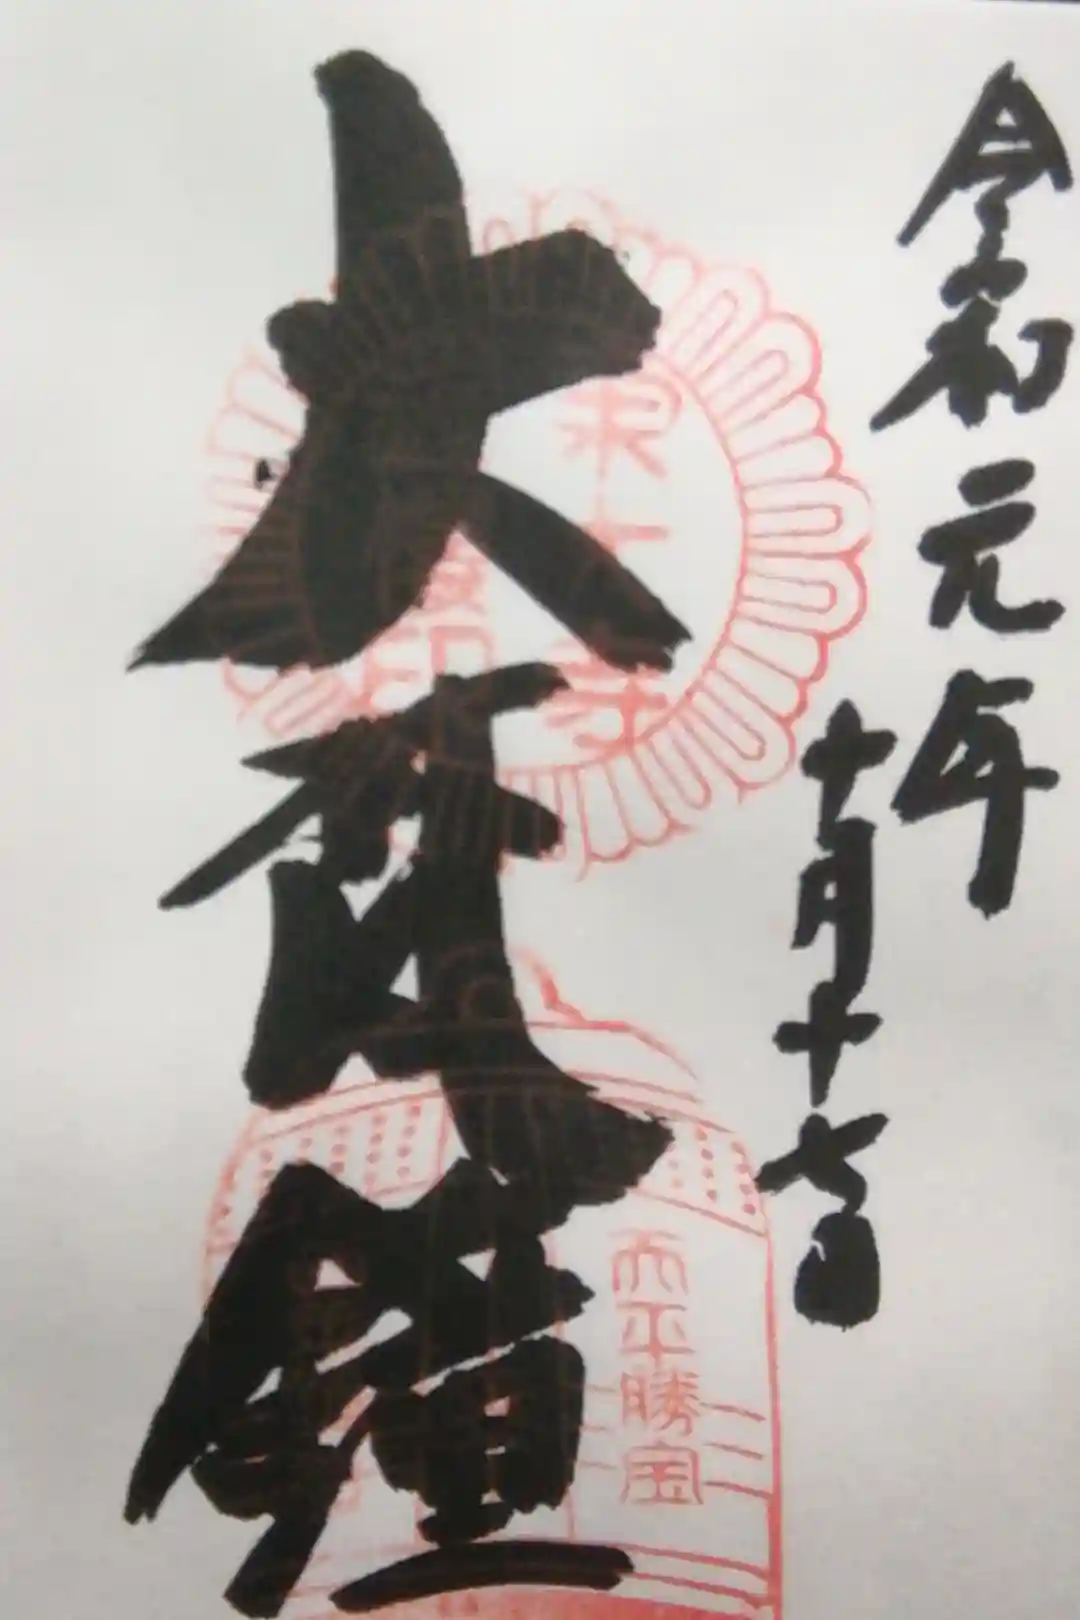 令和元年
十月十七日
大梵鐘
東大寺
天平勝宝